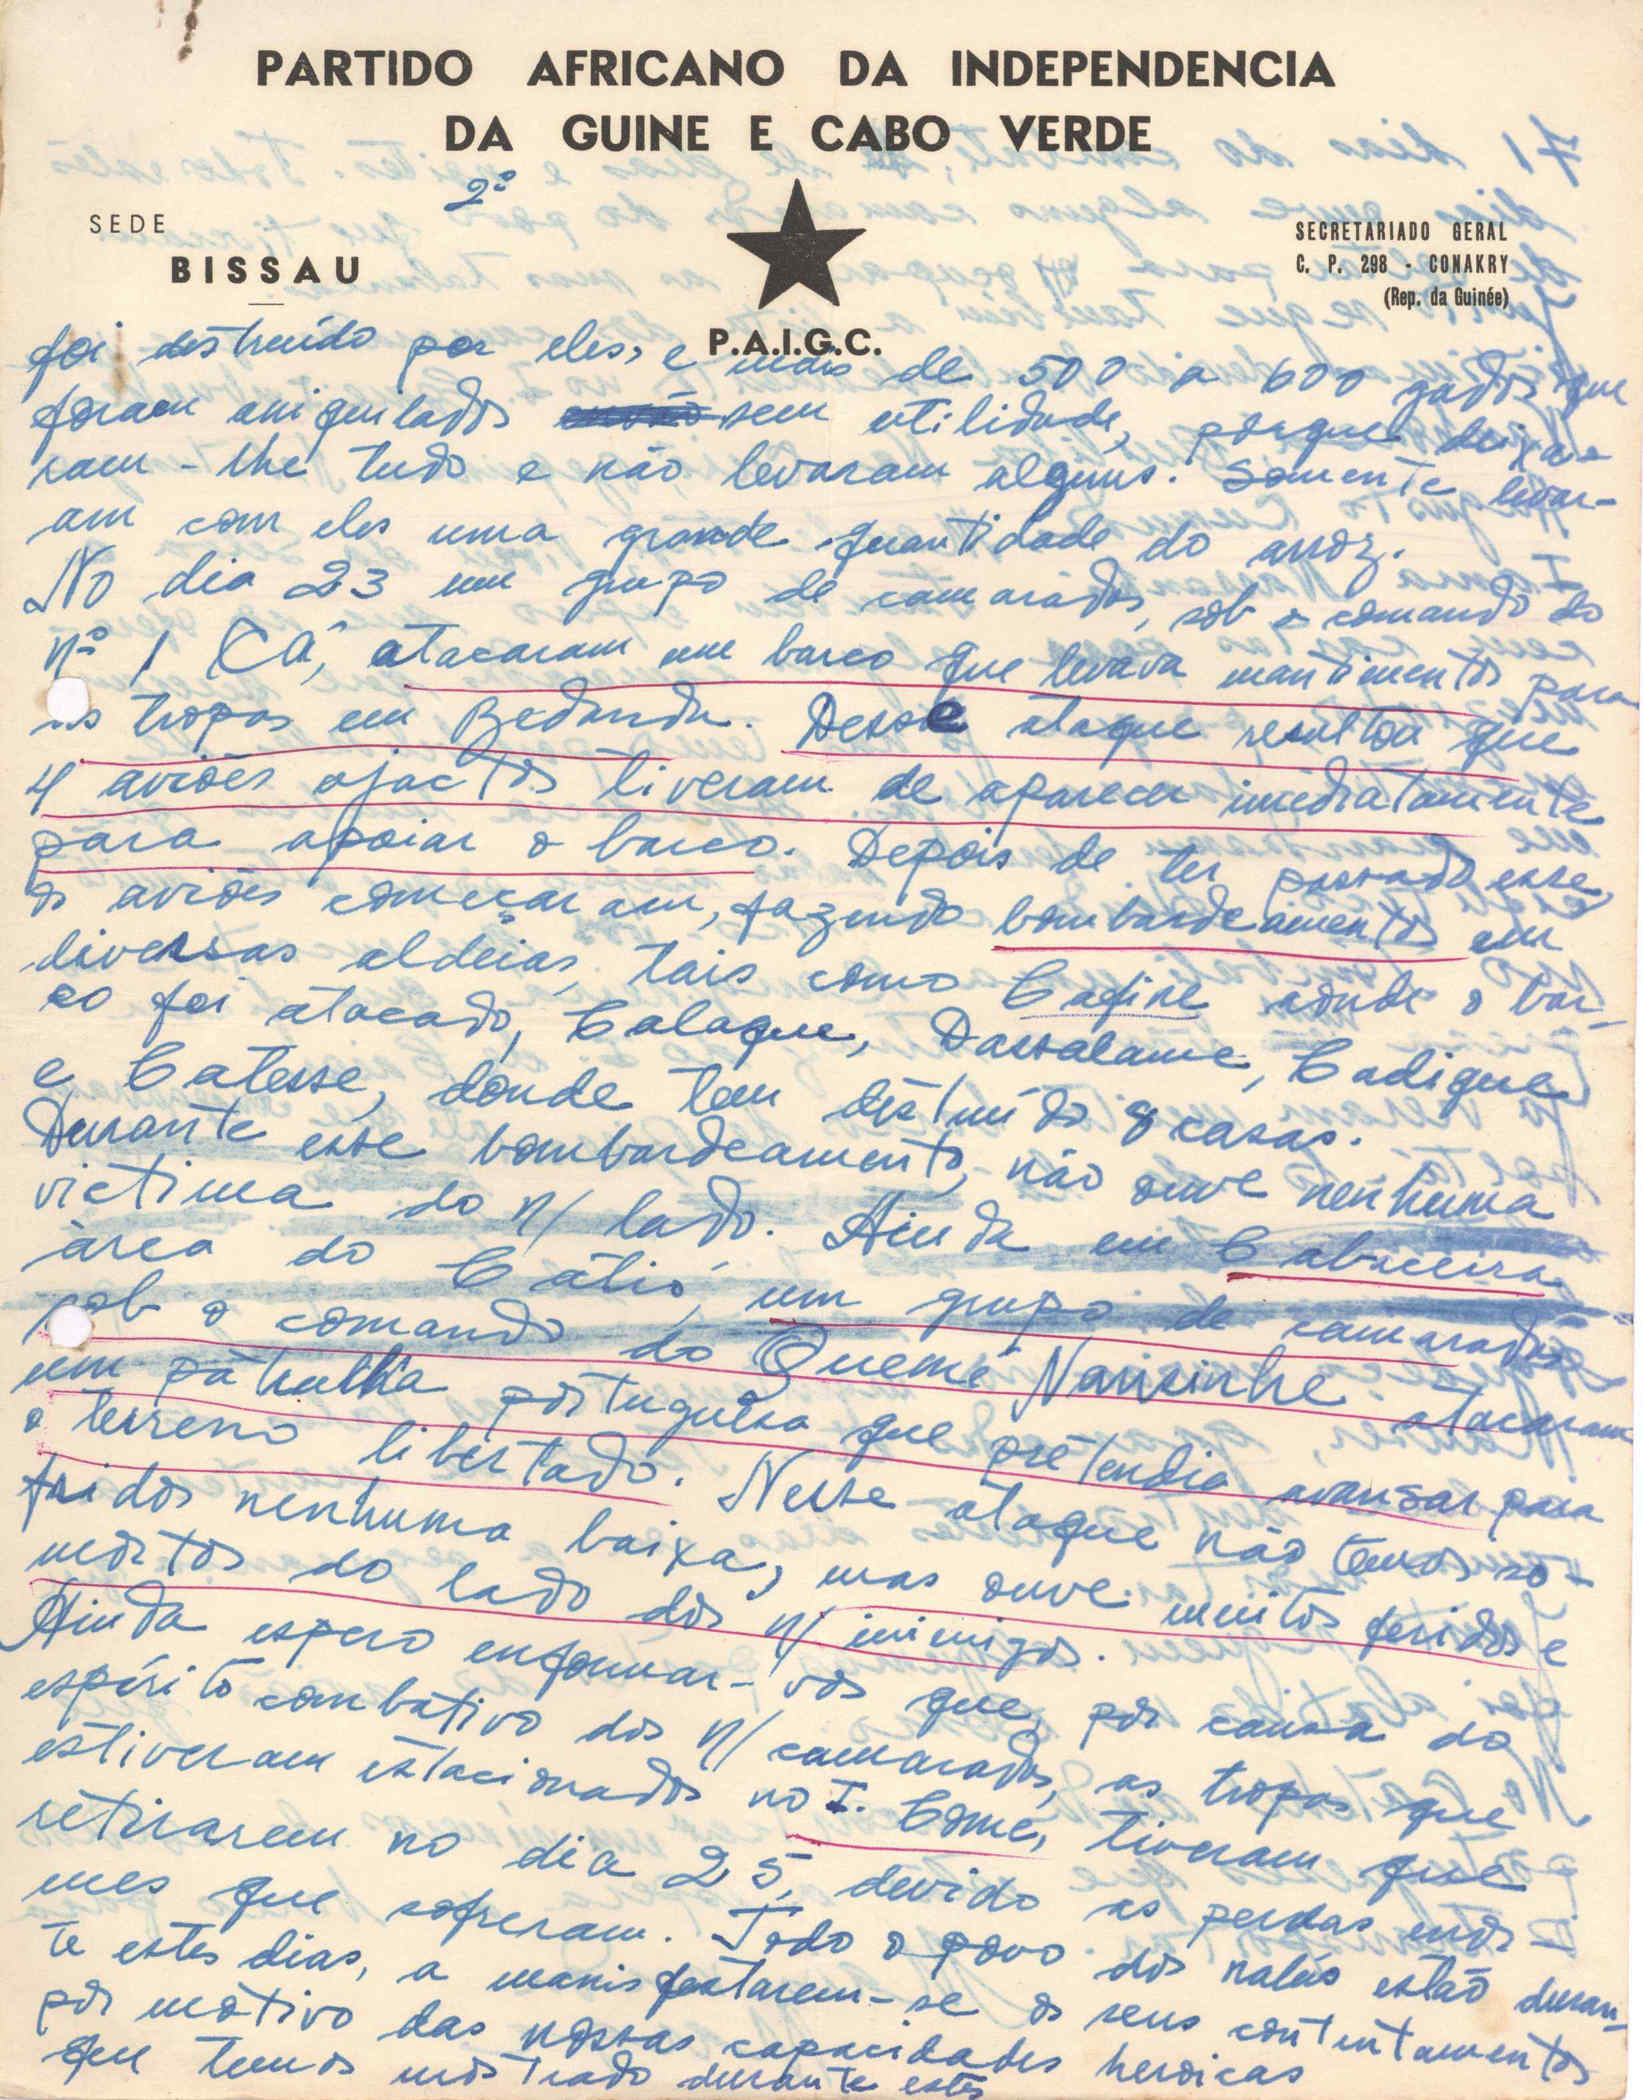 PARTIDO AFRICANO DA INDEPENDENCIA
DA GUINE E CABO VERDE
2º
SEDE
BISSAU
SECRETARIADO GERAL
C. P. 298 - CONAKRY
(Rep. da Guinée)
P.A.I.G.C.
foi destruído por eles, e mais de 500 a 600 gados que
foram aniquilados sem utilidade, porque deixa-
ram-lhe tudo e não levaram alguns. Somente levar-
am com eles uma grande quantidade do arroz.
No dia 23 um grupo de camaradas, sob o comando do
nº 1 Cá, atacaram um barco que levava mantimentos para
as tropas em Bedanda. Desse ataque resultou que
4 aviões ajactos tiveram de aparecer imediatamente
para apoiar o barco. Depois de ter passado esse,
os aviões começaram, fazendo bombardeamentos em
diversas aldeias, tais como Cafine aonde o bar-
co foi atacado, Calaque, Darsalame, Cadique
e Catesse, donde tem distruído 8 casas.
Durante esse bombardeamento, não ouve nenhuma
victima do n/ lado. Ainda em Cabaceira
àrea do Cátió, um grupo de camaradas
sob o comando do Quemé Narisinhe atacaram
um patrulha portuguêsa que pretendia avansar para
o terreno libertado. Nesse ataque não temos so-
fridos nenhuma baixa, mas ouve muitos feridos e
mortos do lado dos n/ inimigos.
Ainda espero enformar-vos que, por causa do
espírito combativo dos n/ camaradas, as tropas que
estiveram estacionados no I. Como, tiveram que
retirarem no dia 25, devido as perdas enor-
mes que sofreram. Todo o povo dos nalús estão duran-
te estes dias, a manisfestarem-se os seus contentamentos
por motivo das nossas capacidades heroicas
que temos mostrado durante estes